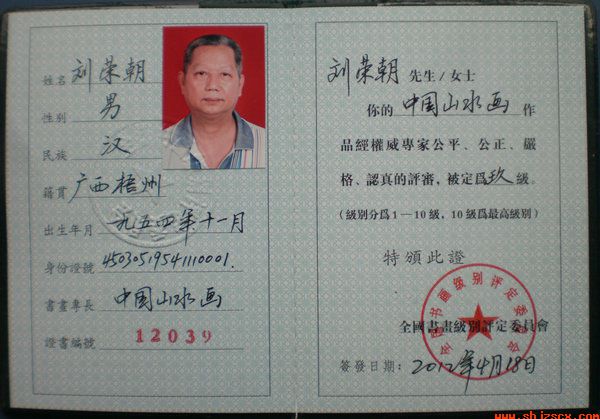 姓名 刘荣朝
性别 男
民族 汉
籍貫 广西梧州
出生年月 一九五四年十一月
身份證號 45030519541110001.
書畫專長 中国山水画
證書編號 12039
刘荣朝 先生/女士
你的 中国山水画 作
品經權威專家公平、公正、嚴
格、認真的評審，被定爲玖級。
(級别分爲1—10級，10級爲最高級别)
特頒此證
全国书画级别评定委员会
全國書畫級别評定委員會
簽發日期：2012年4月18日
www.shjzscx.com